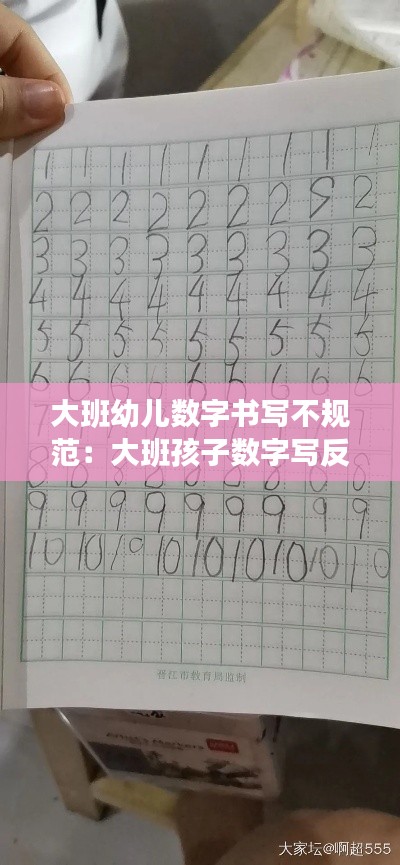 1 1 1 1 1 1 1 1 1
2 2 2 2 2 2 2 9 2
3 3 3 3 3 3 3 3 3
4 4 4 4 4 4 4 4 4
5 5 5 5 5 5 5 5 5
6 6 6 6 6 6 6 6 6
大班幼儿数字书写不规
范：大班孩子数字写反
9 9 9 9 9 9 9 9 9
10 10 19 10 10 10 10 10 10
晋江市教育局监制
Markers
大家坛@啊超555